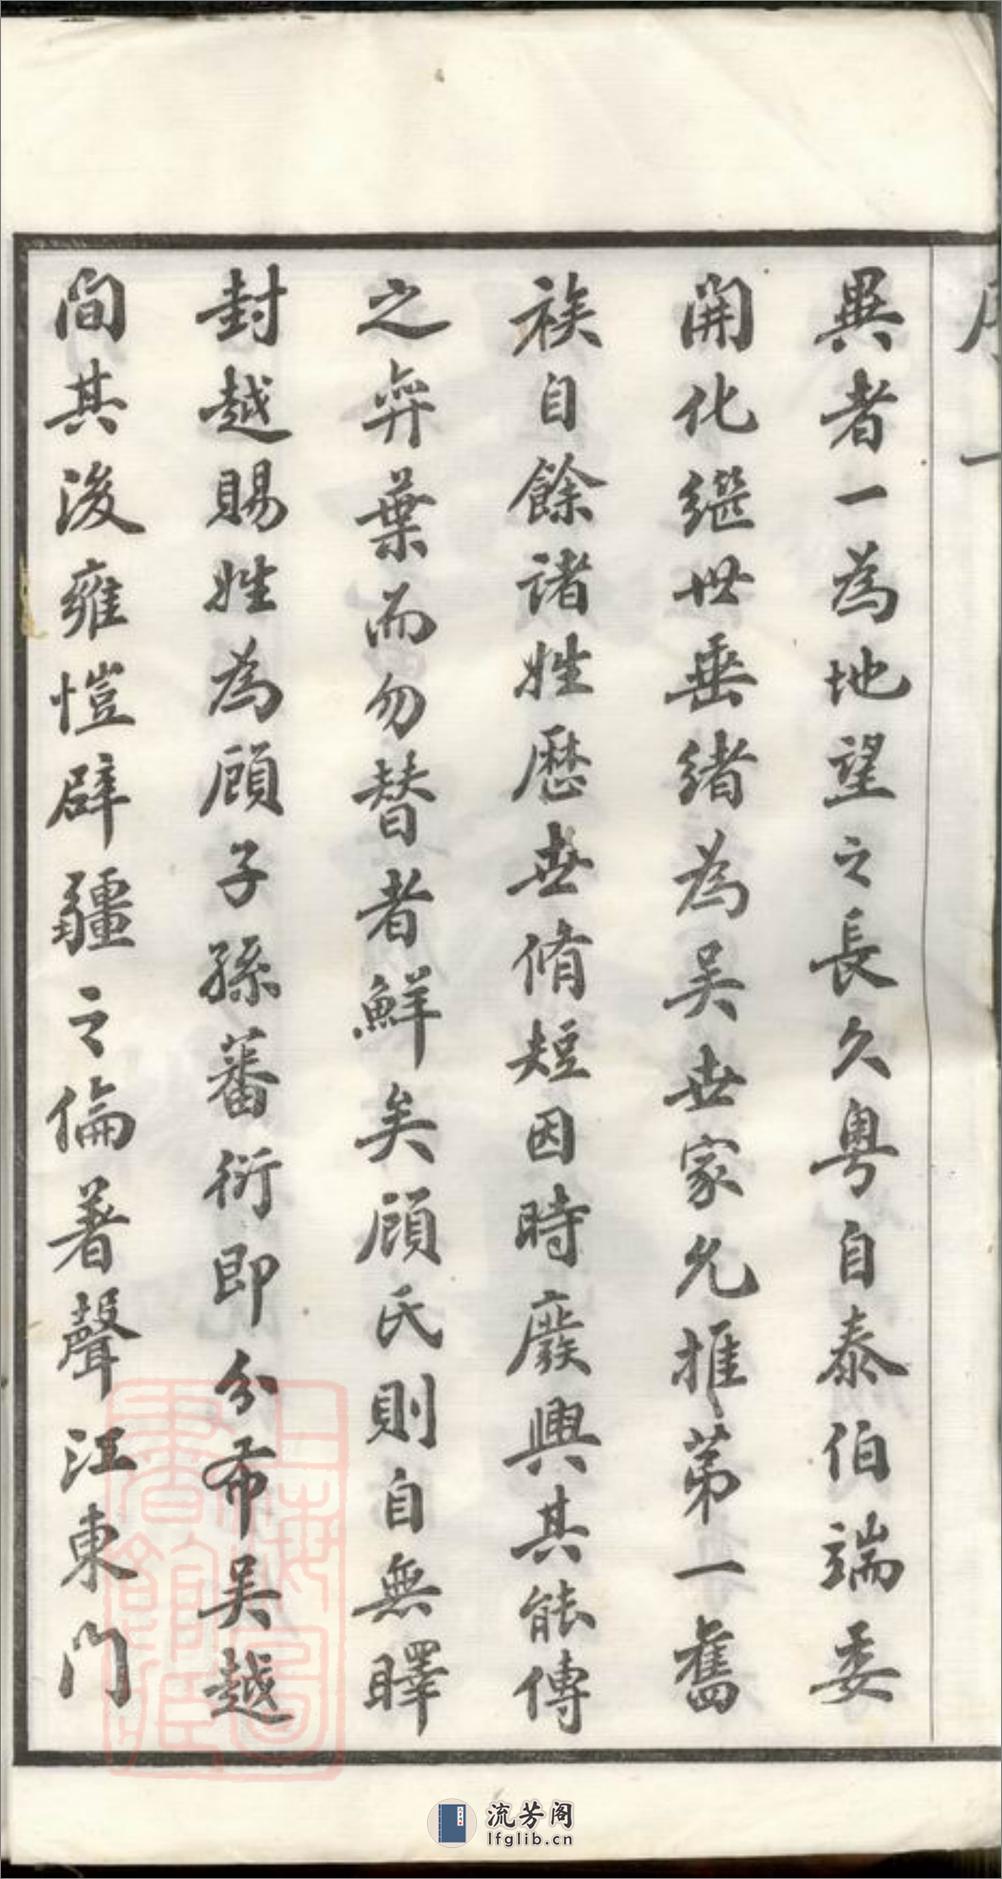 序 一
異者一為地望之長久粵自泰伯端委
開化繼世垂緒為吳世家允推第一舊
族自餘諸姓歷世脩短因時廢興其能傳
之弈葉而勿替者鮮矣顧氏則自無曎
封越賜姓為顧子孫蕃衍即分布吳越
間其後雍愷辟疆之倫著聲江東門
上海圖書館藏
流芳阁
lfglib.cn